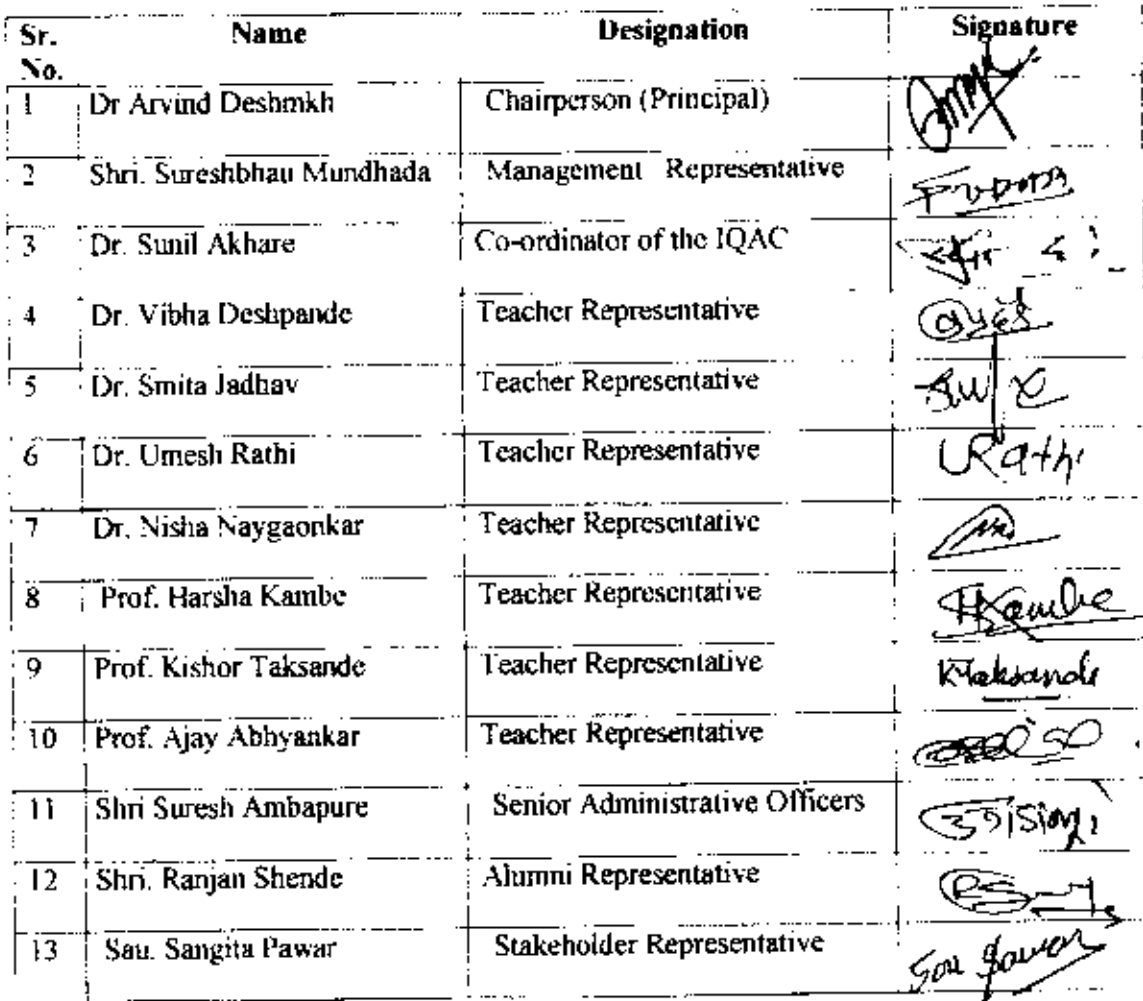 Sr. No. Name Designation Signature
1 Dr Arvind Deshmkh Chairperson (Principal)
2 Shri. Sureshbhau Mundhada Management Representative
3 Dr. Sunil Akhare Co-ordinator of the IQAC
4 Dr. Vibha Deshpande Teacher Representative
5 Dr. Smita Jadhav Teacher Representative
6 Dr. Umesh Rathi Teacher Representative URathi
7 Dr. Nisha Naygaonkar Teacher Representative
8 Prof. Harsha Kambe Teacher Representative HKambe
9 Prof. Kishor Taksande Teacher Representative KTaksande
10 Prof. Ajay Abhyankar Teacher Representative
11 Shri Suresh Ambapure Senior Administrative Officers
12 Shri. Ranjan Shende Alumni Representative
13 Sau. Sangita Pawar Stakeholder Representative Sau Pawar